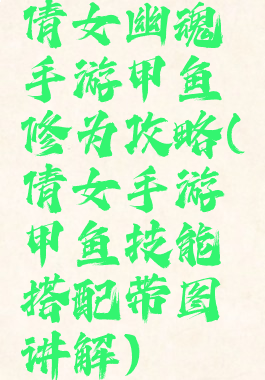 倩女幽魂
手游甲鱼
修为攻略(
倩女手游
甲鱼技能
搭配带图
讲解)